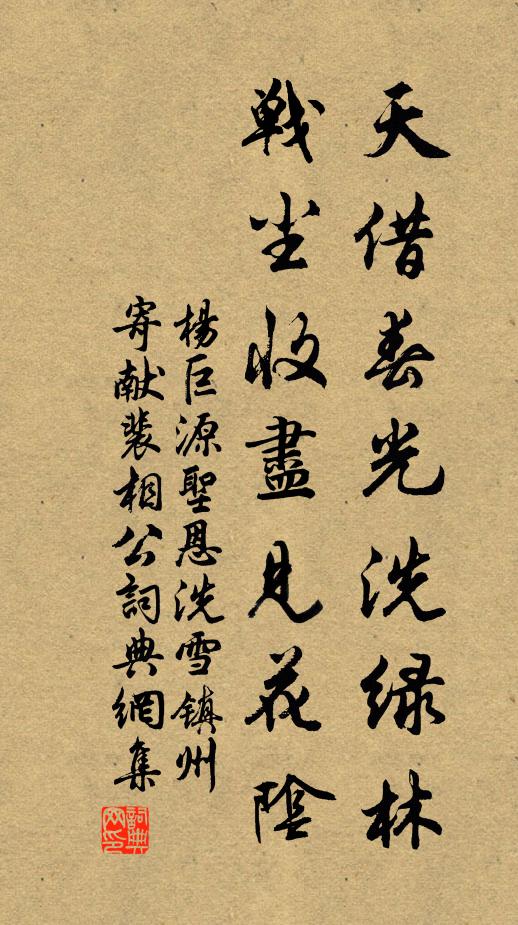 天借春光洗綠林
戰尘收盡見花陰
楊巨源聖恩洗雪鎮州
寄獻裴相公詞典網集
詞典
网印